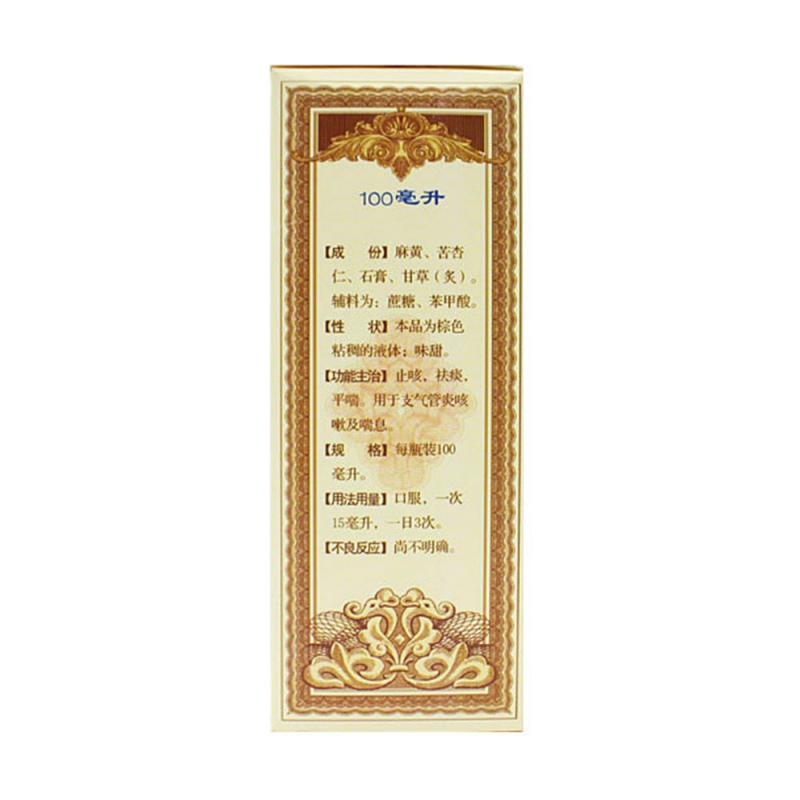 100毫升
【成 份】麻黄、苦杏
仁、石膏、甘草（炙）。
辅料为：蔗糖、苯甲酸。
【性 状】本品为棕色
粘稠的液体；味甜。
【功能主治】止咳，祛痰，
平喘。用于支气管炎咳
嗽及喘息。
【规 格】每瓶装100
毫升。
【用法用量】口服，一次
15毫升，一日3次。
【不良反应】尚不明确。